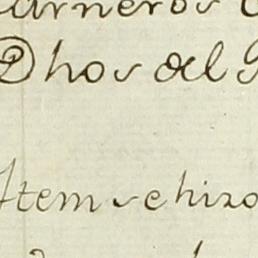 arneros
Dhos del
Item se hizo